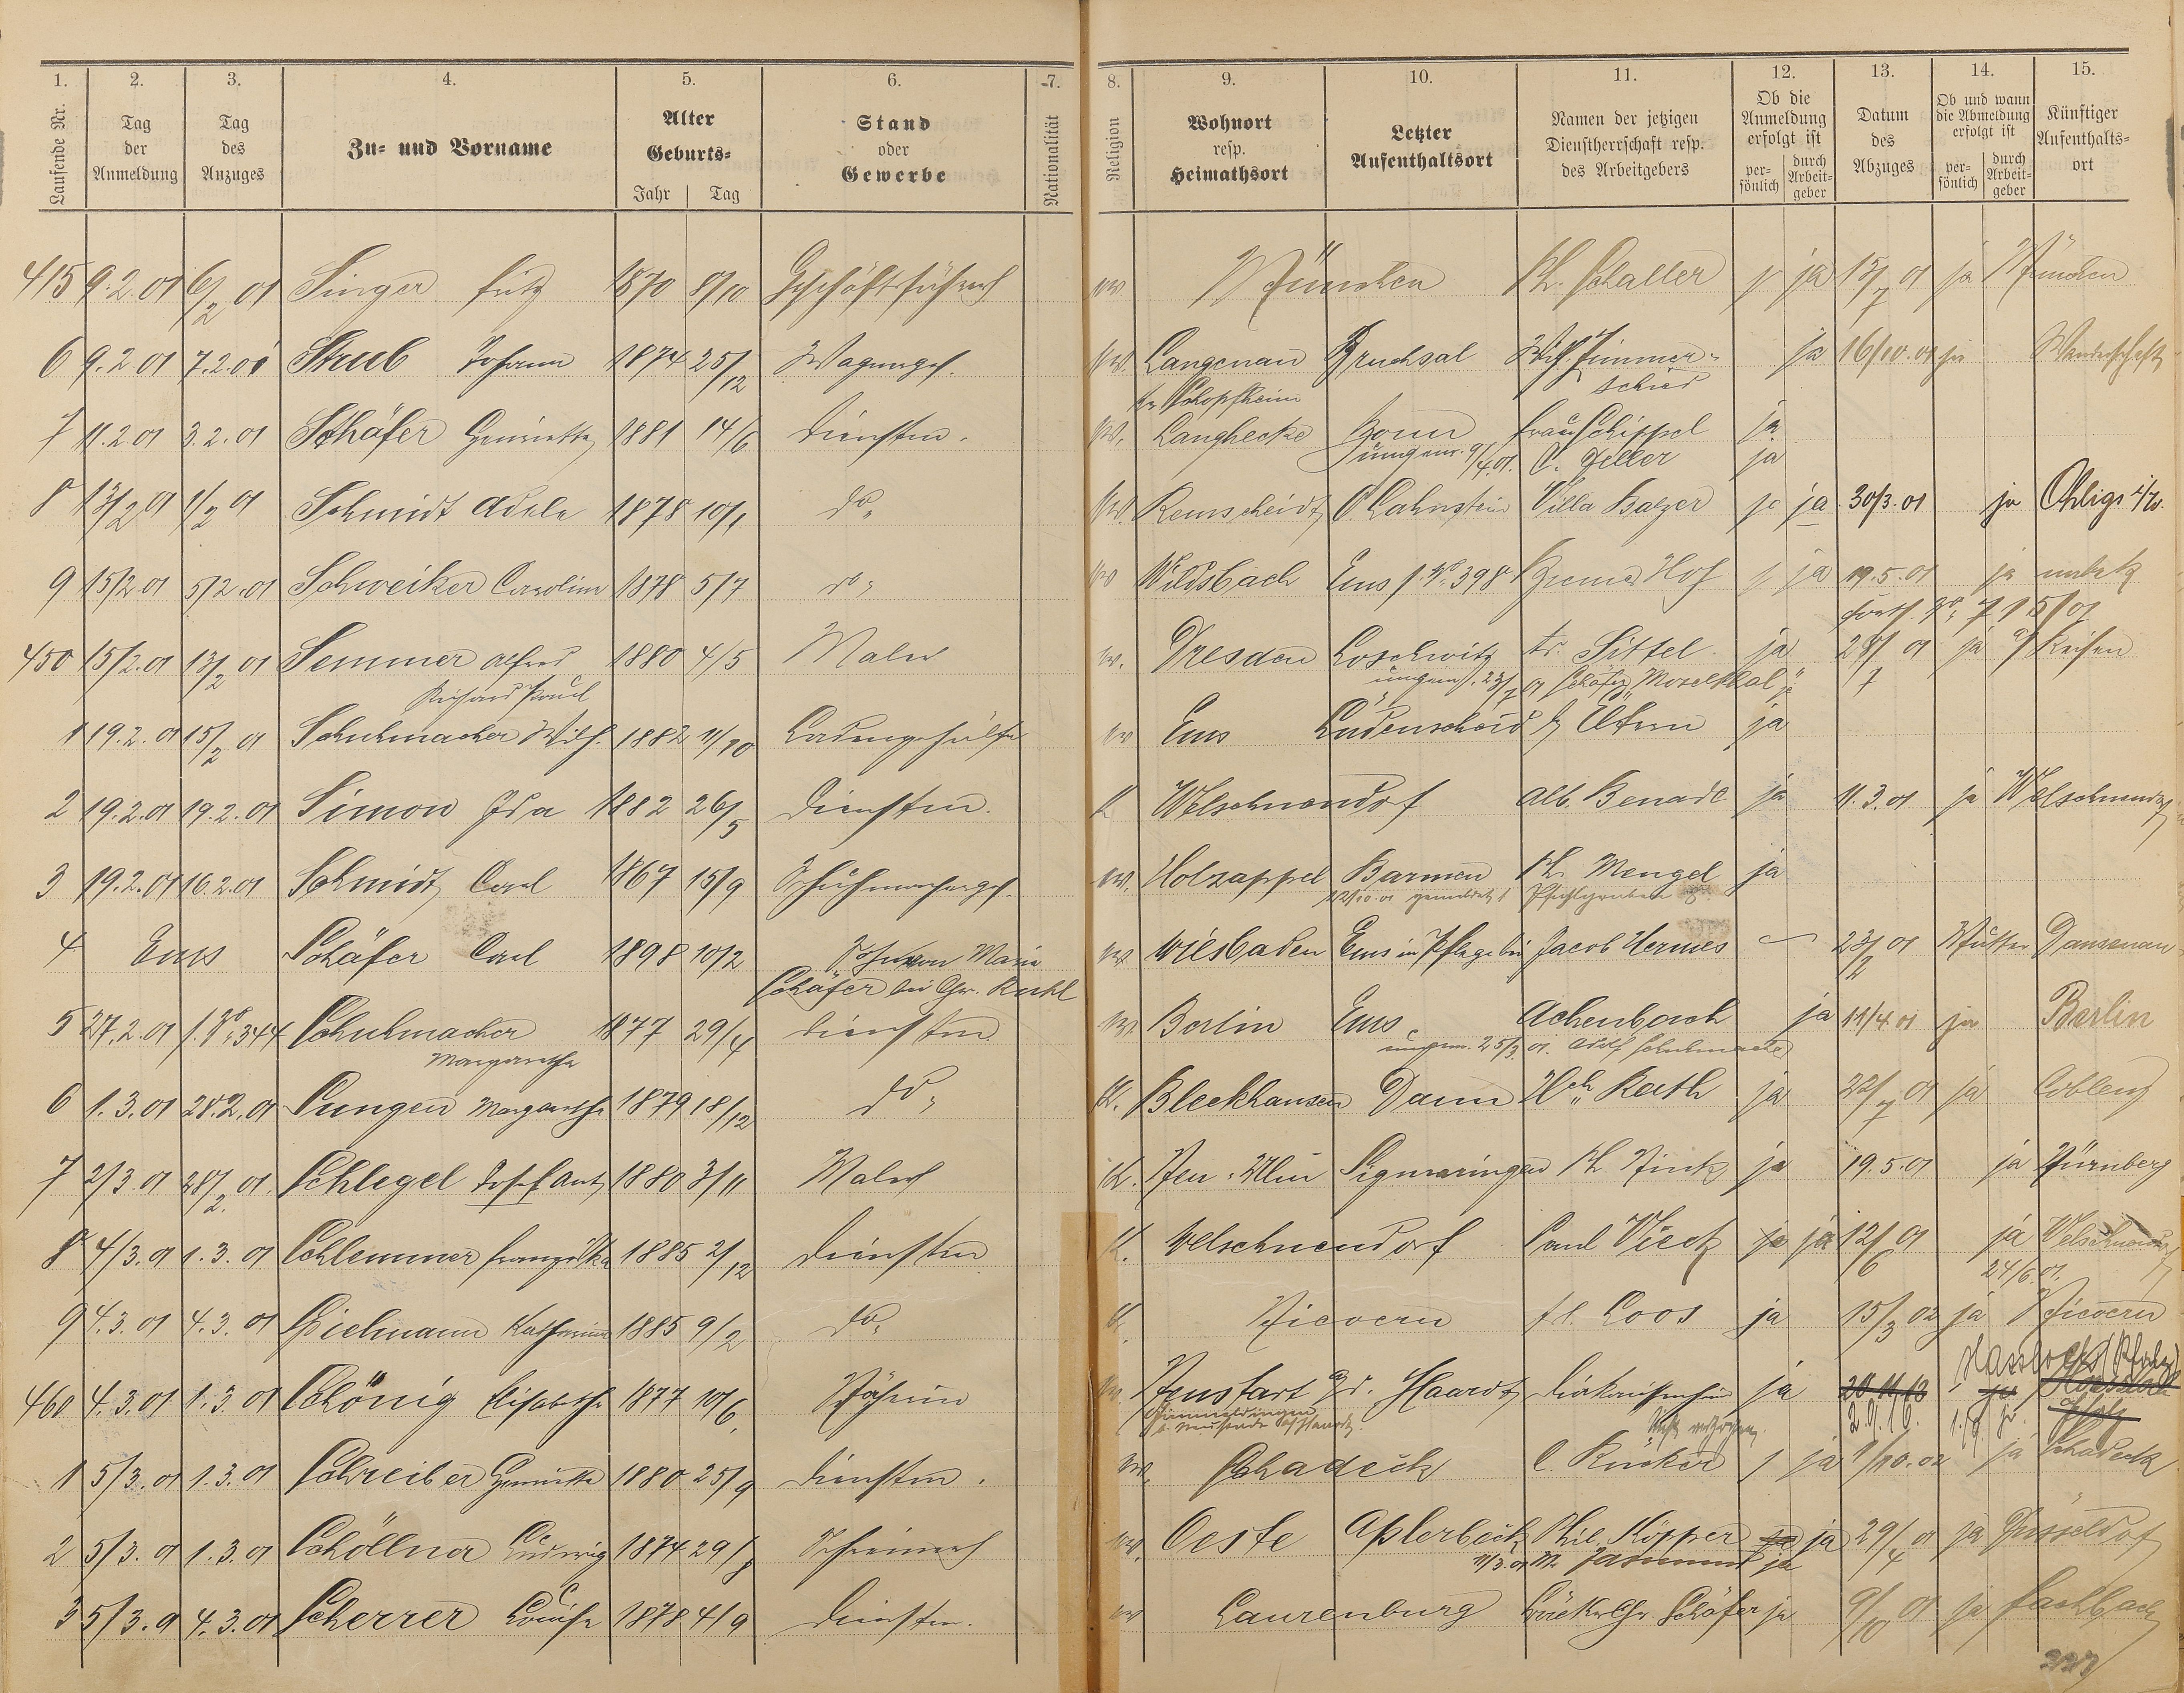 1. 2. 3. 4. 5. 6. 7. 8. 9. 10. 11. 12. 13. 14. 15.
Laufende Nr. Tag der Anmeldung Tag des Anzuges Zu- und Vorname Alter Geburts- Jahr Tag Stand oder Gewerbe Nationalität Religion Wohnort resp. Heimathsort Letzter Aufenthaltsort Namen der jetzigen Dienstherrschaft resp. des Arbeitgebers Ob die Anmeldung erfolgt ist per- sönlich durch Arbeit- geber Datum des Abzuges Ob und wann die Abmeldung erfolgt ist per- sönlich durch Arbeit- geber Künftiger Aufenthalts- ort
415 9.2.01 6/2 01 Singer Fritz 1870 8/10 Geschäftsführer München Ph. Schaller ja 15/7 01 ja München
6 9.2.01 7.2.01 Strub Johann 1874 25/12 Wagnerges. Langenau Bruchsal Wilh. Zimmer- ja 16/10.01 ja Wanderschaft
Schopfheim schied
7 11.2.01 3.2.01 Schäfer Henriette 1881 14/6 Dienstm. Langhecke Bonn Frau Schippel ja
9/4.01. C. Zeller ja
8 13/2 01 1/2 01 Schmidt Adele 1878 10/1 do. Remscheidt O. Lahnstein Villa Balzer ja 30/3.01 ja Ohligs
9 15/2.01 5/2.01 Schweiker Caroline 1878 5/7 do. Wildsbach Ems f. No. 398 Bremer Hof ja 19.5.01 ja unbek
450 15/2.01 13/2 01 Semmer Alfred 1880 4/5 Maler Dresden Loschwitz Sittel ja 28/7 01 ja a/ Reisen
Richard Paul 23/7 01 Schäfer Moselthal
1 19.2.01 15/2 01 Schuhmacher Wilh. 1882 11/10 Ladengehülfe Ems Lüdenscheid Eltern ja
2 19.2.01 19.2.01 Simon Ida 1882 26/5 Dienstm. K Welschneudorf Alb. Benade ja 11.3.01 ja Welschneudorf
3 19.2.01 16.2.01 Schmidt Carl 1867 15/9 Schuhmacherges. Holzappel Barmen Ph. Mengel ja
4 Ems Schäfer Carl 1898 10/2 Sohn von Marie Wiesbaden Ems in Pflege bei Jacob Hermes 23/2 01 Mutter Dausenau
Schäfer bei Chr. Ruhl
5 27.2.01 f. No. 344 Schuhmacher 1877 29/4 Dienstm. Berlin Ems Achenbach ja 11/4.01 ja Berlin
Margarethe 25/3. 01. Adolf Schuhmacher
6 1.3.01 28.2.01 Sungen Margarethe 1879 18/12 do. K. Bleckhausen Daun Hch. Rath ja 22/7 01 ja Coblenz
7 2/3.01 28/2.01. Schlegel Josef Ant. 1880 3/11 Maler K. Neu-Ulm Sigmaringen Ph. Zink ja 19.5.01 ja Nürnberg
8 4/3.01 1.3.01 Schlemmer Franziska 1885 2/12 Dienstm. K. Welschneudorf Paul Vieck ja ja 12/6 01 ja Welschneudorf
24/6.01.
9 4.3.01 4.3.01 Spielmann Katharine 1885 9/2 do. K. Nievern Loos ja 15/3 02 ja Nievern
460 4.3.01 1.3.01 Schönig Elisabethe 1877 10/6 Näherin Neustadt a/d. Haardt Diakonissenheim ja 20.11.13 ja Hassloch (Pfalz)
2.9.16.
1 5/3.01 1.3.01 Schreiber Henriette 1880 25/9 Dienstm. Schadeck C. Rücker ja 1/10.02 ja Schadeck
2 5/3.01 1.3.01 Schöllner Ludwig 1874 29/8 Schreiner Oeste Aplerbeck Phil. Köpper ja ja 29/4 01 ja Düsseldorf
11/3.01 ja
3 5/3.01 4.3.01 Scherrer Louise 1878 4/9 Dienstm. Laurenburg Bäcker Chr. Schäfer ja 9/10 01 ja Fachbach